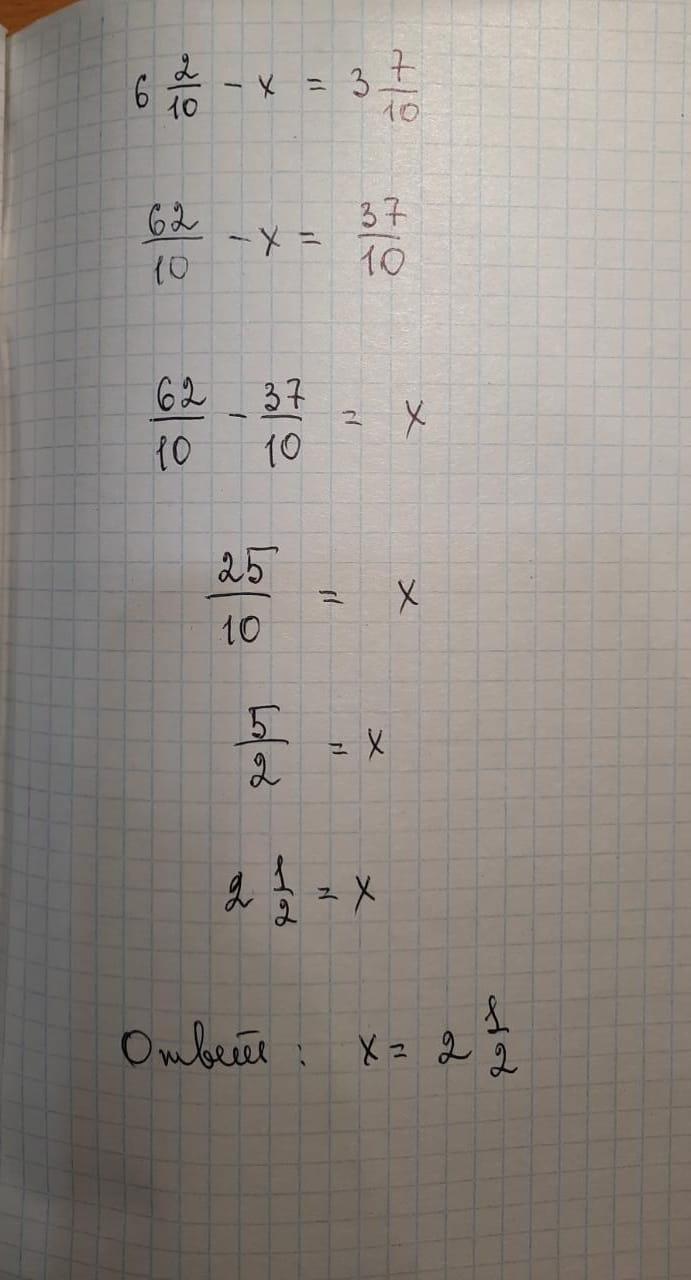 6 2/10 - x = 3 7/10
62/10 - x = 37/10
62/10 - 37/10 = x
25/10 = x
5/2 = x
2 1/2 = x
Ответ: x = 2 1/2